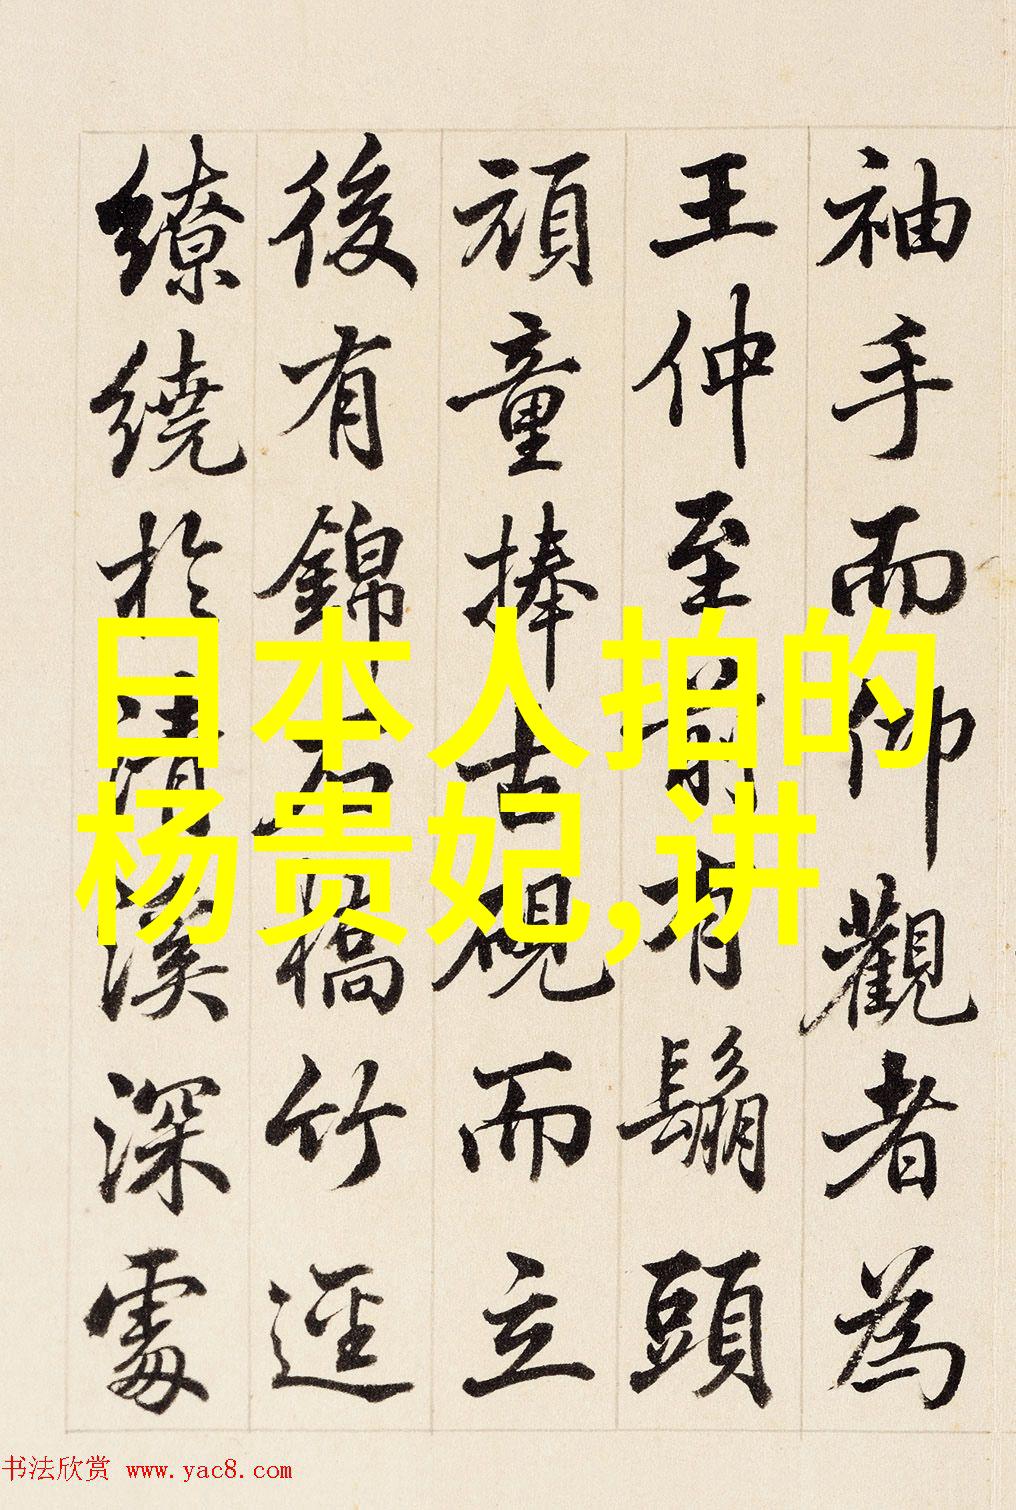 袖手而仰觀者為
王仲至前有鬅頭
頑童捧古硯而立
後有錦石橋竹逕
繚繞於清溪深處
日本人拍的
杨贵妃,讲
书法欣赏 www.yac8.com